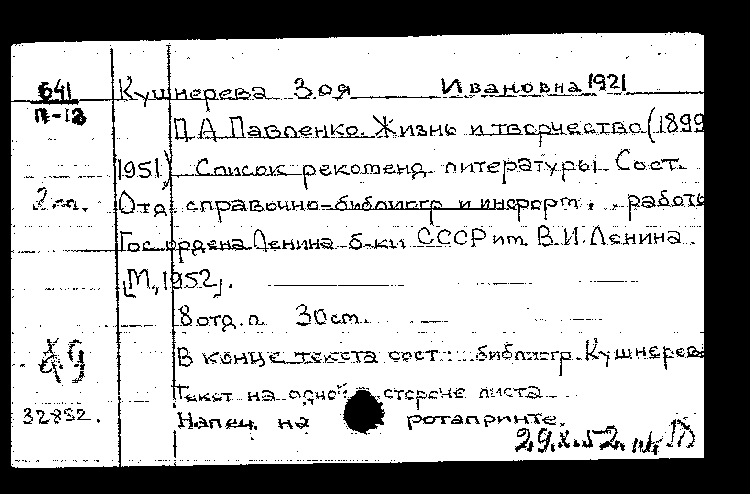 641 Кушнерева Зоя Ивановна 1921
П-12
П.А. Павленко. Жизнь и творчество (1899
1951) Список рекоменд. литературы. Сост.
2 экз. Отд. справочно-библиогр и информ. работы
Гос. ордена Ленина б-ки СССР им. В.И. Ленина.
[М, 1952].
8 отд. л. 30 см.
В конце текста сост: библиогр. Кушнерева
Текст на одной стороне листа
32852. Напеч. на ротапринте.
29.X.52.